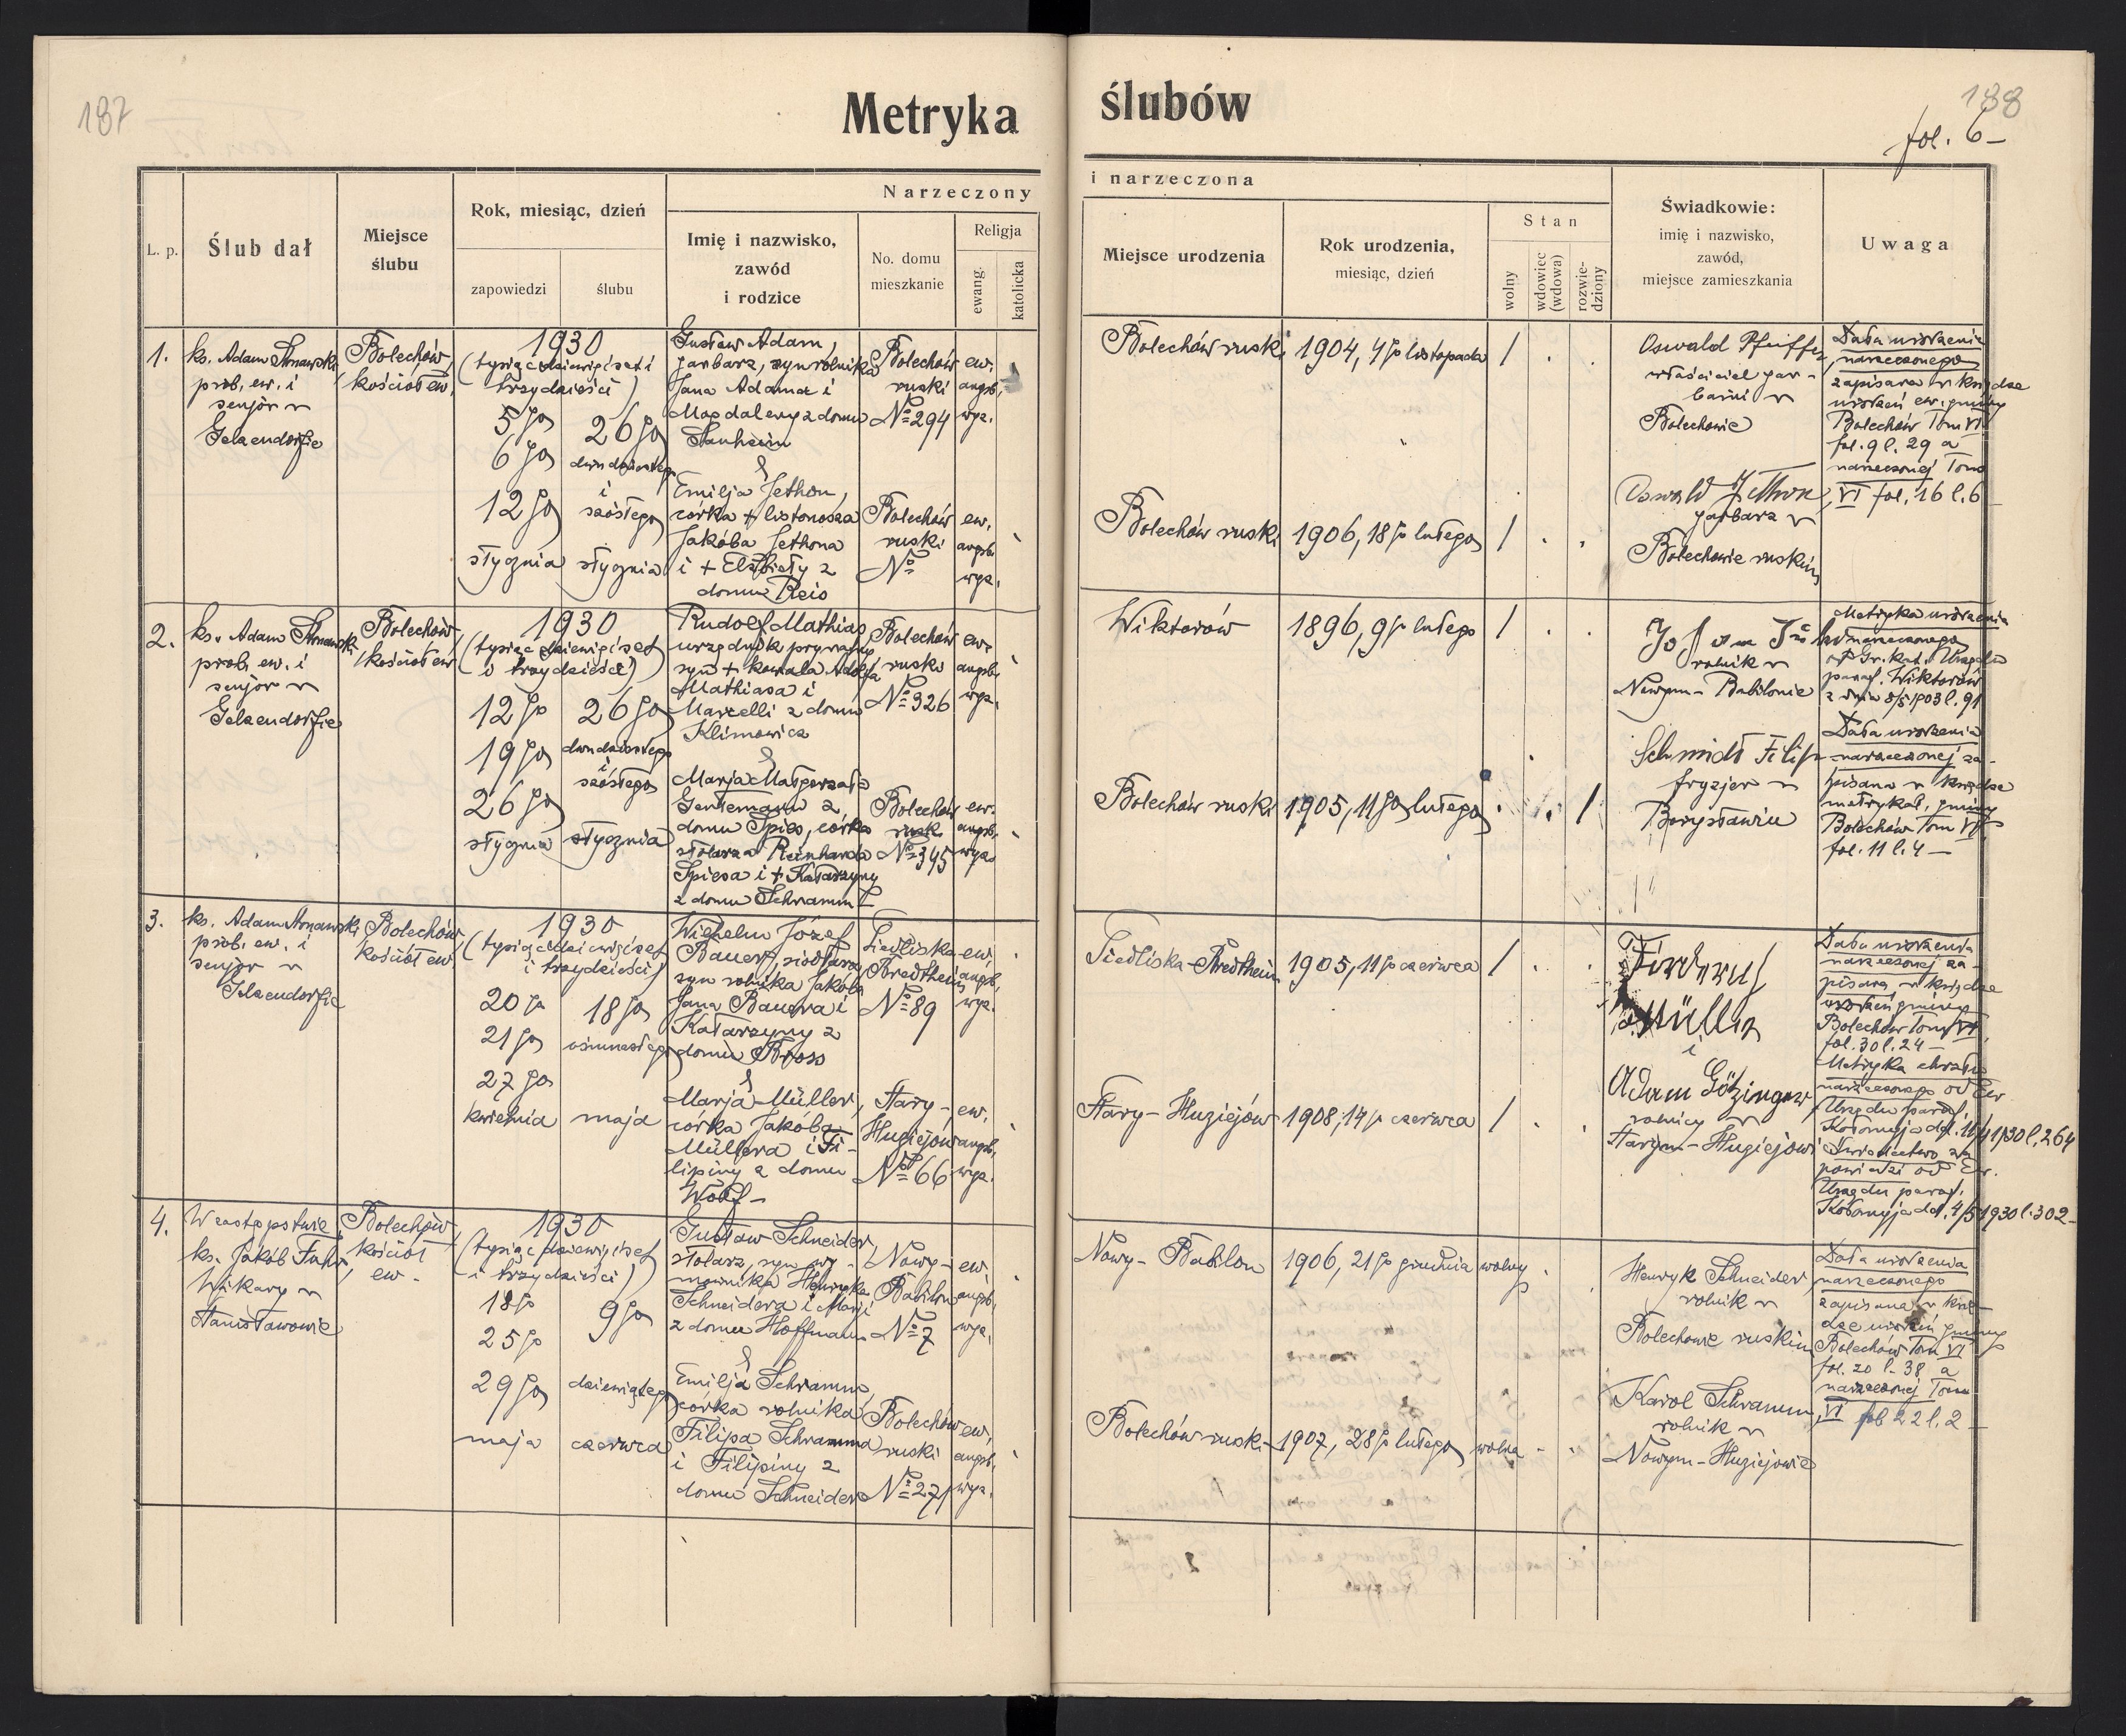 187
Metryka
L. p.
Ślub dał
Miejsce
ślubu
Rok, miesiąc, dzień
zapowiedzi
ślubu
Narzeczony
Imię i nazwisko,
zawód
i rodzice
No. domu
mieszkanie
Religja
ewang.
katolicka
1.
ks. Adam
prob. ew. i
senjor w
Gelsendorfie
Bolechów,
kościół ew.
1930
(tysiąc dziewięćset i
trzydzieści)
5go
6go
12go
stycznia
26go
dwudziestego
i
szóstego
stycznia
Gustaw Adam,
garbarz, syn rolnika
Jana Adama i
Magdaleny z domu
Manheim
&
Emilja Jethon,
córka + listonosza
Jakóba Jethona
i + Elżbiety z
domu Reis
Bolechów
ruski
No 294
ew.
augsb.
wyz.
Bolechów
ruski
No
ew.
augsb.
wyz.
2.
ks. Adam
prob. ew. i
senjor w
Gelsendorfie
Bolechów,
kościół ew.
1930
(tysiąc dziewięćset
i trzydzieści)
12go
19go
26go
stycznia
26go
dwudziestego
i
szóstego
stycznia
Rudolf Mathias
urzędnik prywatny
syn + kowala Adolfa
Mathiasa i
Marcelli z domu
Klimowicz
&
Marja Małgorzata
Gentemann z
domu Spies, córka
stolarza Reinharda
Spiesa i + Katarzyny
z domu Schramm
Bolechów
ruski
No 326
ew.
augsb.
wyz.
Bolechów
ruski
No 345
ew.
augsb.
wyz.
3.
ks. Adam
prob. ew. i
senjor w
Gelsendorfie
Bolechów,
kościół ew.
1930
(tysiąc dziewięćset
i trzydzieści)
20go
21go
27go
kwietnia
18go
ośmnastego
maja
Wilhelm Józef
Bauer, siodlarz
syn rolnika Jakóba
Jana Bauera i
Katarzyny z
domu Bross
&
Marja Müller,
córka Jakóba
Müllera i Fi-
lipiny z domu
Wolf -
Siedliska
Bredtheim
No 89
ew.
augsb.
wyz.
Stary -
Huziejów
No 66
ew.
augsb.
wyz.
4.
W zastępstwie
ks. Jakób Fuhr,
Wikary w
Stanisławowie
Bolechów,
kościół
ew.
1930
(tysiąc dziewięćset
i trzydzieści)
18go
25go
29go
maja
9go
dziewiątego
czerwca
Gustaw Schneider,
stolarz, syn wy-
mownika Henryka
Schneidera i Marji
z domu Hoffmann
&
Emilja Schramm,
córka rolnika
Filipa Schramma
i Filipiny z
domu Schneider
Nowy -
Babilon
No 7
ew.
augsb.
wyz.
Bolechów
ruski
No 271
ew.
augsb.
wyz.
188
fol. 6 -
ślubów
i narzeczona
Miejsce urodzenia
Rok urodzenia,
miesiąc, dzień
Stan
wolny
wdowiec
(wdowa)
rozwie-
dziony
Świadkowie:
imię i nazwisko,
zawód,
miejsce zamieszkania
Uwaga
Bolechów ruski
1904, 4go listopada
/
Oswald Pfeiffer,
właściciel gar-
barni w
Bolechowie
Data urodzenia
narzeczonego
zapisana w księdze
urodzeń ew. gminy
Bolechów Tom VI
fol. 9 l. 29 a
narzeczonej Tom
VI fol. 16 l. 6 -
Bolechów ruski
1906, 18go lutego
/
Oswald Jethon,
garbarz w
Bolechowie ruskim
Wiktorów
1896, 9go lutego
/
rolnik w
Nowym - Babilonie
Metryka urodzenia
narzeczonego
Gr. kat. Urzędu
paraf. Wiktorów
z dnia 8/5 1903 l. 91
Bolechów ruski
1905, 11go lutego
/
Schmidt Filip
fryzjer w
Borysławiu
Data urodzenia
narzeczonej za-
pisana w księdze
metrykal. gminy
Bolechów Tom VI
fol. 11 l. 4 -
Siedliska - Bredtheim
1905, 11go czerwca
/
Müller
i
Adam Götzinger
rolnicy w
Starym - Huziejowie
Data urodzenia
narzeczonej za-
pisana w księdze
urodzeń gminy
Bolechów Tom VI
fol. 30 l. 24 -
Metryka chrztu
narzeczonego od Ew.
Urzędu paraf.
Kołomyja dd. 11/4 1930 l. 264
Świadectwo za-
powiedzi od Ew.
Urzędu paraf.
Kołomyja dd. 4/5 1930 l. 302 -
Stary - Huziejów
1908, 14go czerwca
/
Nowy - Babilon
1906, 21go grudnia
wolny
Henryk Schneider
rolnik w
Bolechowie ruskim
Data urodzenia
narzeczonego
zapisana w księ-
dze urodzeń gminy
Bolechów Tom VI
fol. 20 l. 38 a
narzeczonej Tom
VI fol 22 l. 2 -
Bolechów ruski
1907, 28go lutego
wolna
Karol Schramm,
rolnik w
Nowym - Huziejowie